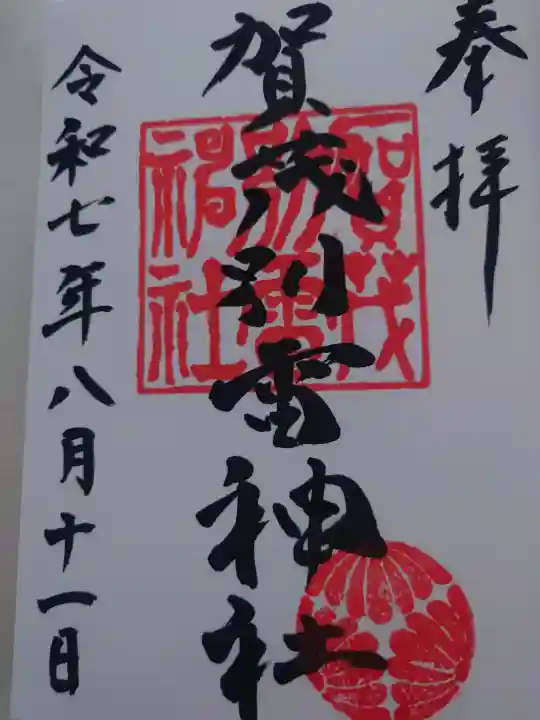 奉拝
賀茂別雷神社
賀茂
別雷
神社
令和七年八月十一日